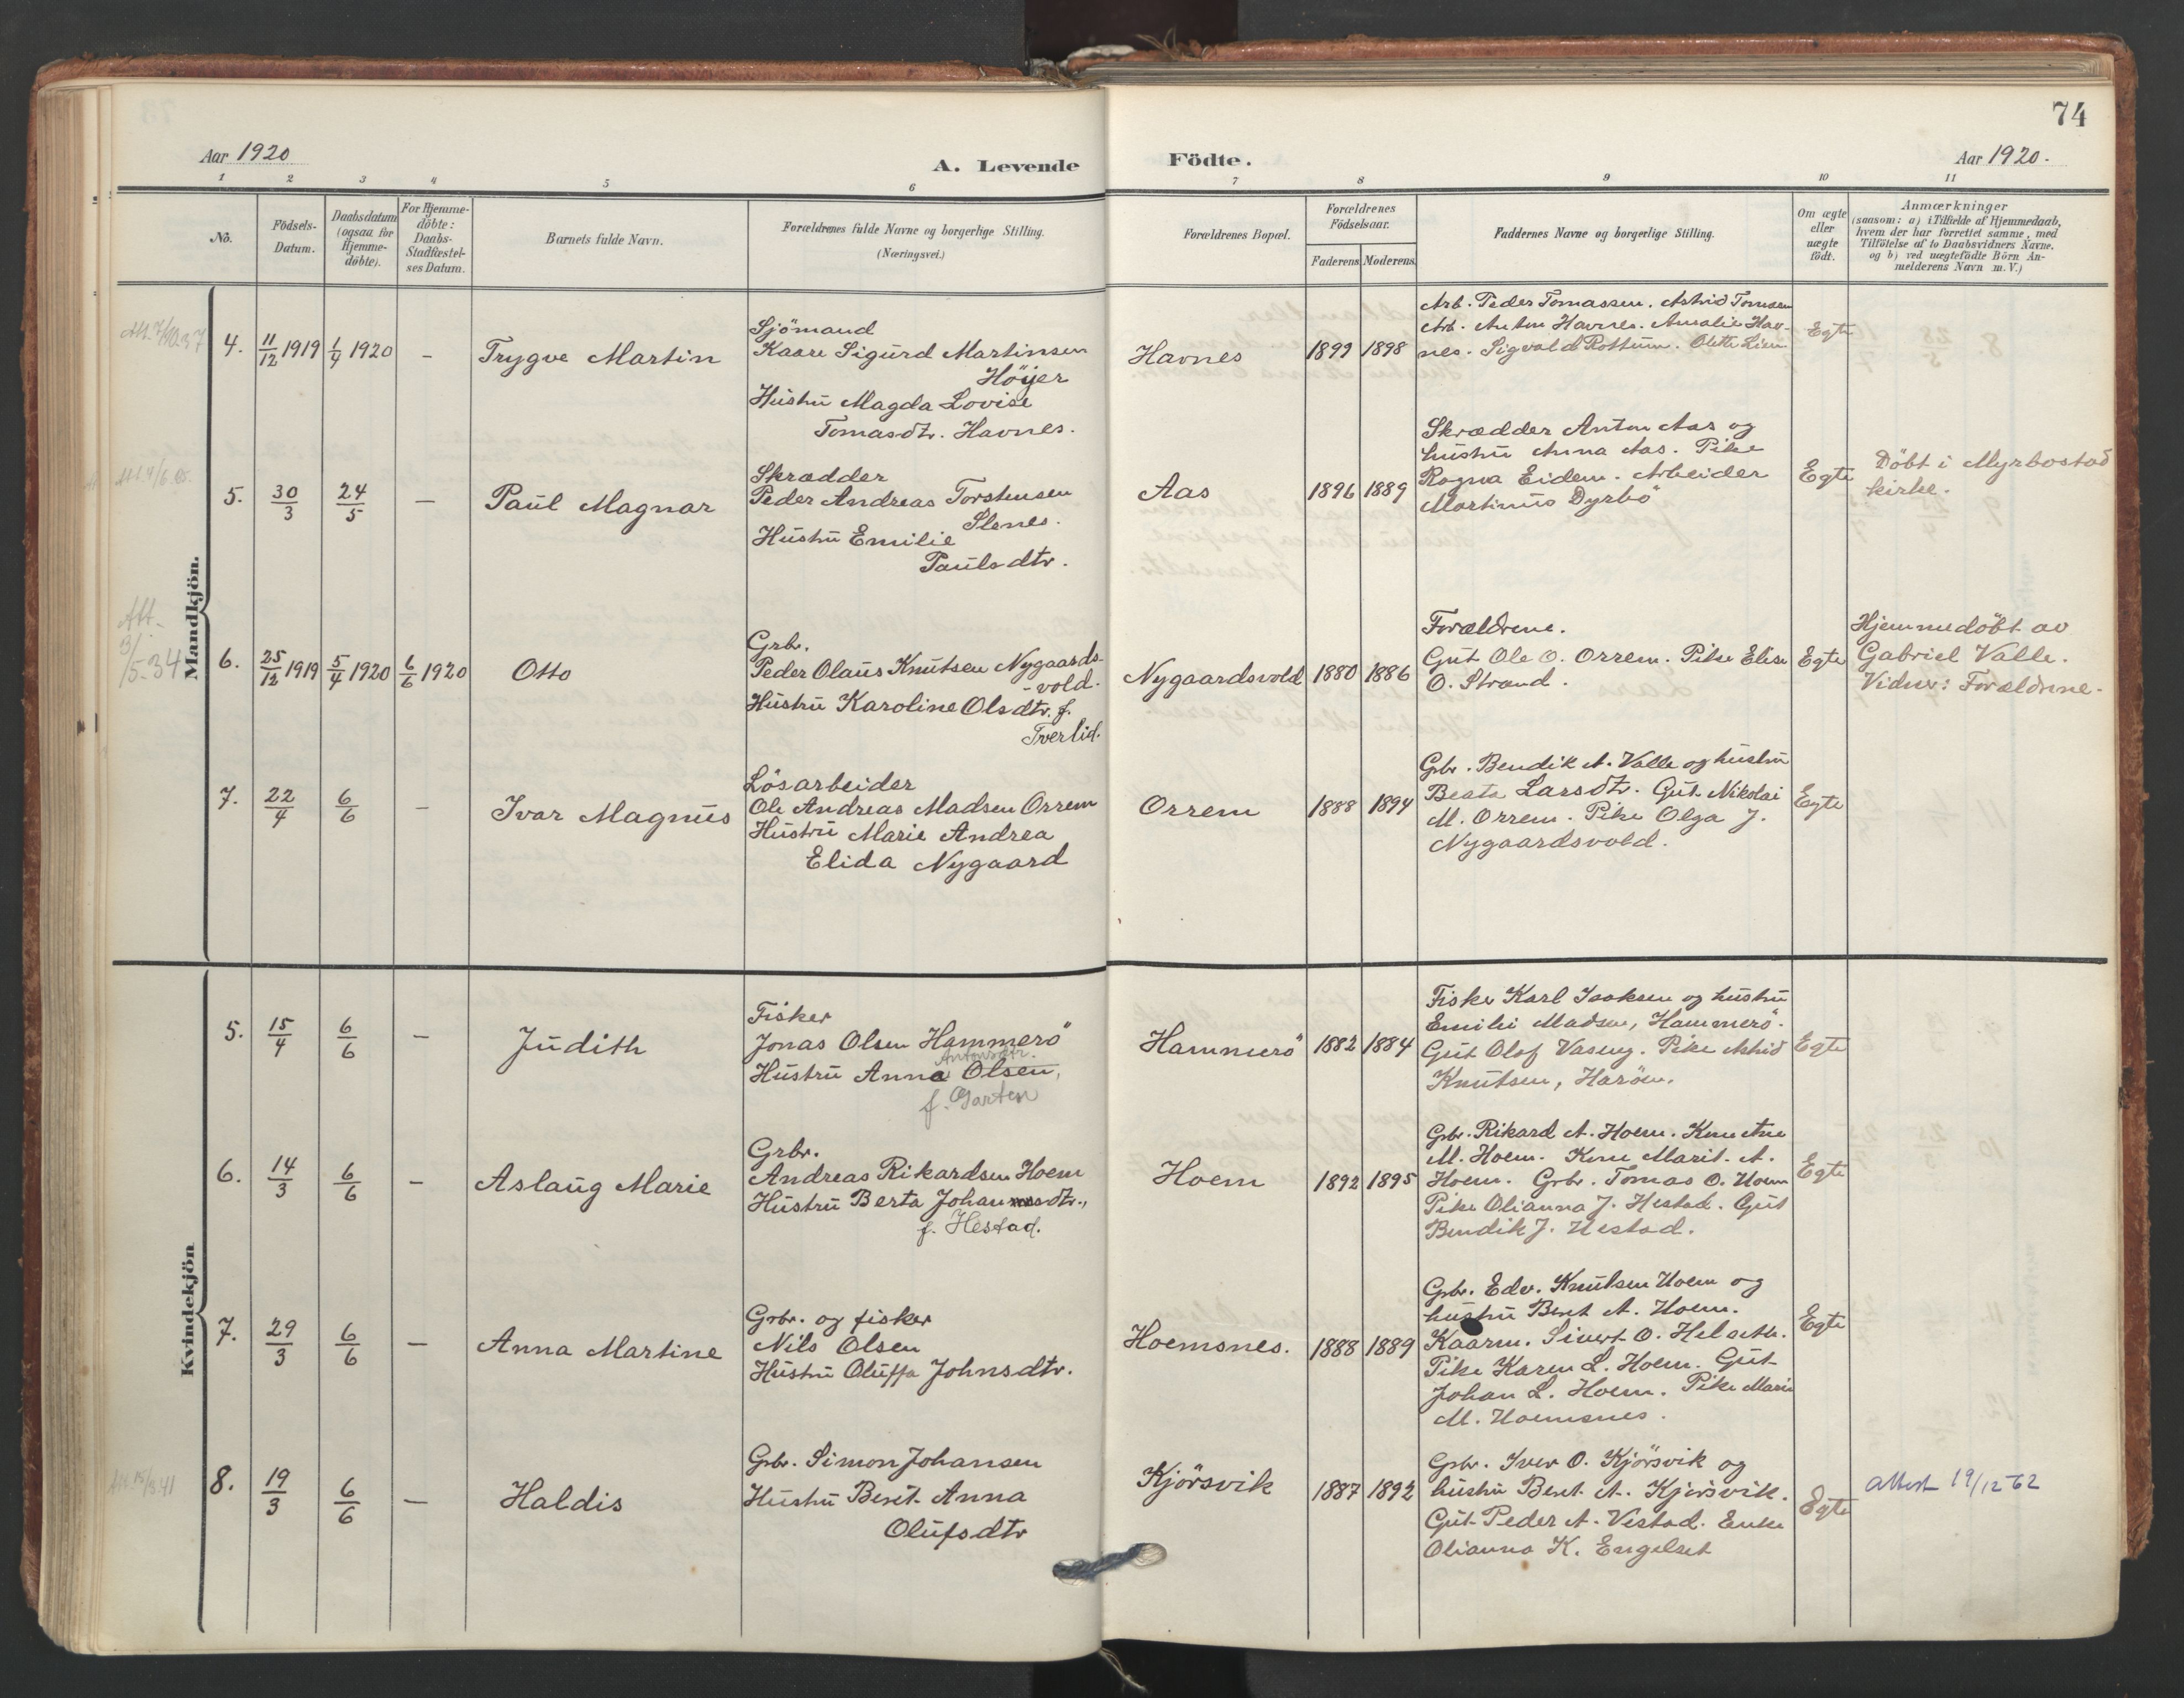 74
Aar 1920
A. Levende
Födte.
Aar 1920.
1 2 3 4 5 6 7 8 9 10 11
No.
Födsels-
Datum.
Daabsdatum
(ogsaa for
Hjemme-
döbte).
For Hjemme-
döbte:
Daabs-
Stadfæstel-
ses Datum.
Barnets fulde Navn.
Forældrenes fulde Navne og borgerlige Stilling.
(Næringsvei.)
Forældrenes Bopæl.
Forældrenes
Födselsaar.
Faderens Moderens
Faddernes Navne og borgerlige Stilling.
Om ægte
eller
uægte
födt.
Anmærkninger
(saasom: a) i Tilfælde af Hjemmedaab,
hvem der har forrettet samme, med
Tilföielse af to Daabsvidners Navne.
og b) ved uægtefödte Börn An-
melderens Navn m. V.)
Mandkjön.
4. 11/12 1919 1/4 1920 – Trygve Martin
Sjömand
Kaare Sigurd Martinsen
Höijer
Hustru Magda Lovise
Tomasdtr. Havnes.
Havnes 1899 1898
Arb. Peder Tomassen. Astrid Tomasen
Arb. Anton Havnes. Amalie Hav-
nes. Sigvald Rottum. Olette Lien
Egte
5. 30/3 24/5 – Paul Magnar
Skrædder
Peder Andreas Torstensen
Slenes.
Hustru Emilie
Paulsdtr.
Aas 1896 1889
Skrædder Anton Aas og
hustru Anna Aas. Pike
Ragna Eidem. Arbeider
Martinus Dyrbö
Egte
Döbt i Myrbostad
kirke.
Att.
3/
/5-34
6. 25/12 1919 5/4 1920 6/6 1920 Otto
Grbr.
Peder Olaus Knutsen Nygaards-
-vold.
Hustru Karoline Olsdtr. f.
Tverlid.
Nygaardsvold 1880 1886
Forældrene.
Gut Ole O. Orrem. Pike Elise
O. Strand.
Egte
Hjemmedöbt av
Gabriel Valle.
Vidner: Forældrene.
7. 22/4 6/6 – Ivar Magnus
Lösarbeider
Ole Andreas Madsen Orrem
Hustru Marie Andrea
Elida Nygaard
Orrem 1888 1894
Grbr. Bendik A. Valle og hustru
Beata Larsdtr. Gut Nikolai
M. Orrem. Pike Olga J.
Nygaardsvold.
Egte
Kvindekjön
5. 15/4 6/6 – Judith
Fisker
Jonas Olsen Hammerö
Antonsdtr.
Hustru Anna Olsen,
f. Garten
Hammerö 1882 1884
Fisker Karl Isaksen og hustru
Emilie Madsen, Hammerö.
Gut Olaf Vaseng. Pike Astrid
Knutsen, Haröen.
Egte
6. 14/3 6/6 – Aslaug Marie
Grbr.
Andreas Rikardsen Hoem
Hustru Berta Johansdtr.,
f. Hestad.
Hoem 1892 1895
Grbr. Rikard A. Hoem. Kone Ane
M. Hoem. Kone Marit A.
Hoem. Grbr. Tomas O. Hoem
Pike Olianna J. Hestad. Gut
Bendik J. Hestad.
Egte
7. 29/3 6/6 – Anna Martine
Grbr. og fisker
Nils Olsen
Hustru Oluffa Johnsdtr.
Hoemsnes. 1888 1889
Grbr. Edv. Knutsen Hoem og
hustru Beret A. Hoem.
Kaarm. Sivert O. Helseth.
Pike Karen L. Hoem. Gut
Johan L. Hoem. Pike Marie
M. Hoemsnes.
Egte
8. 19/3 6/6 – Haldis
Grbr. Simon Johansen
Hustru Beret Anna
Olufsdtr
Kjörsvik 1887 1892
Grbr. Iver O. Kjörsvik og
hustru Beret A. Kjörsvik.
Gut Peder A. Vestad. Enke
Olianna K. Engelset
Egte
Attest 19/12-62